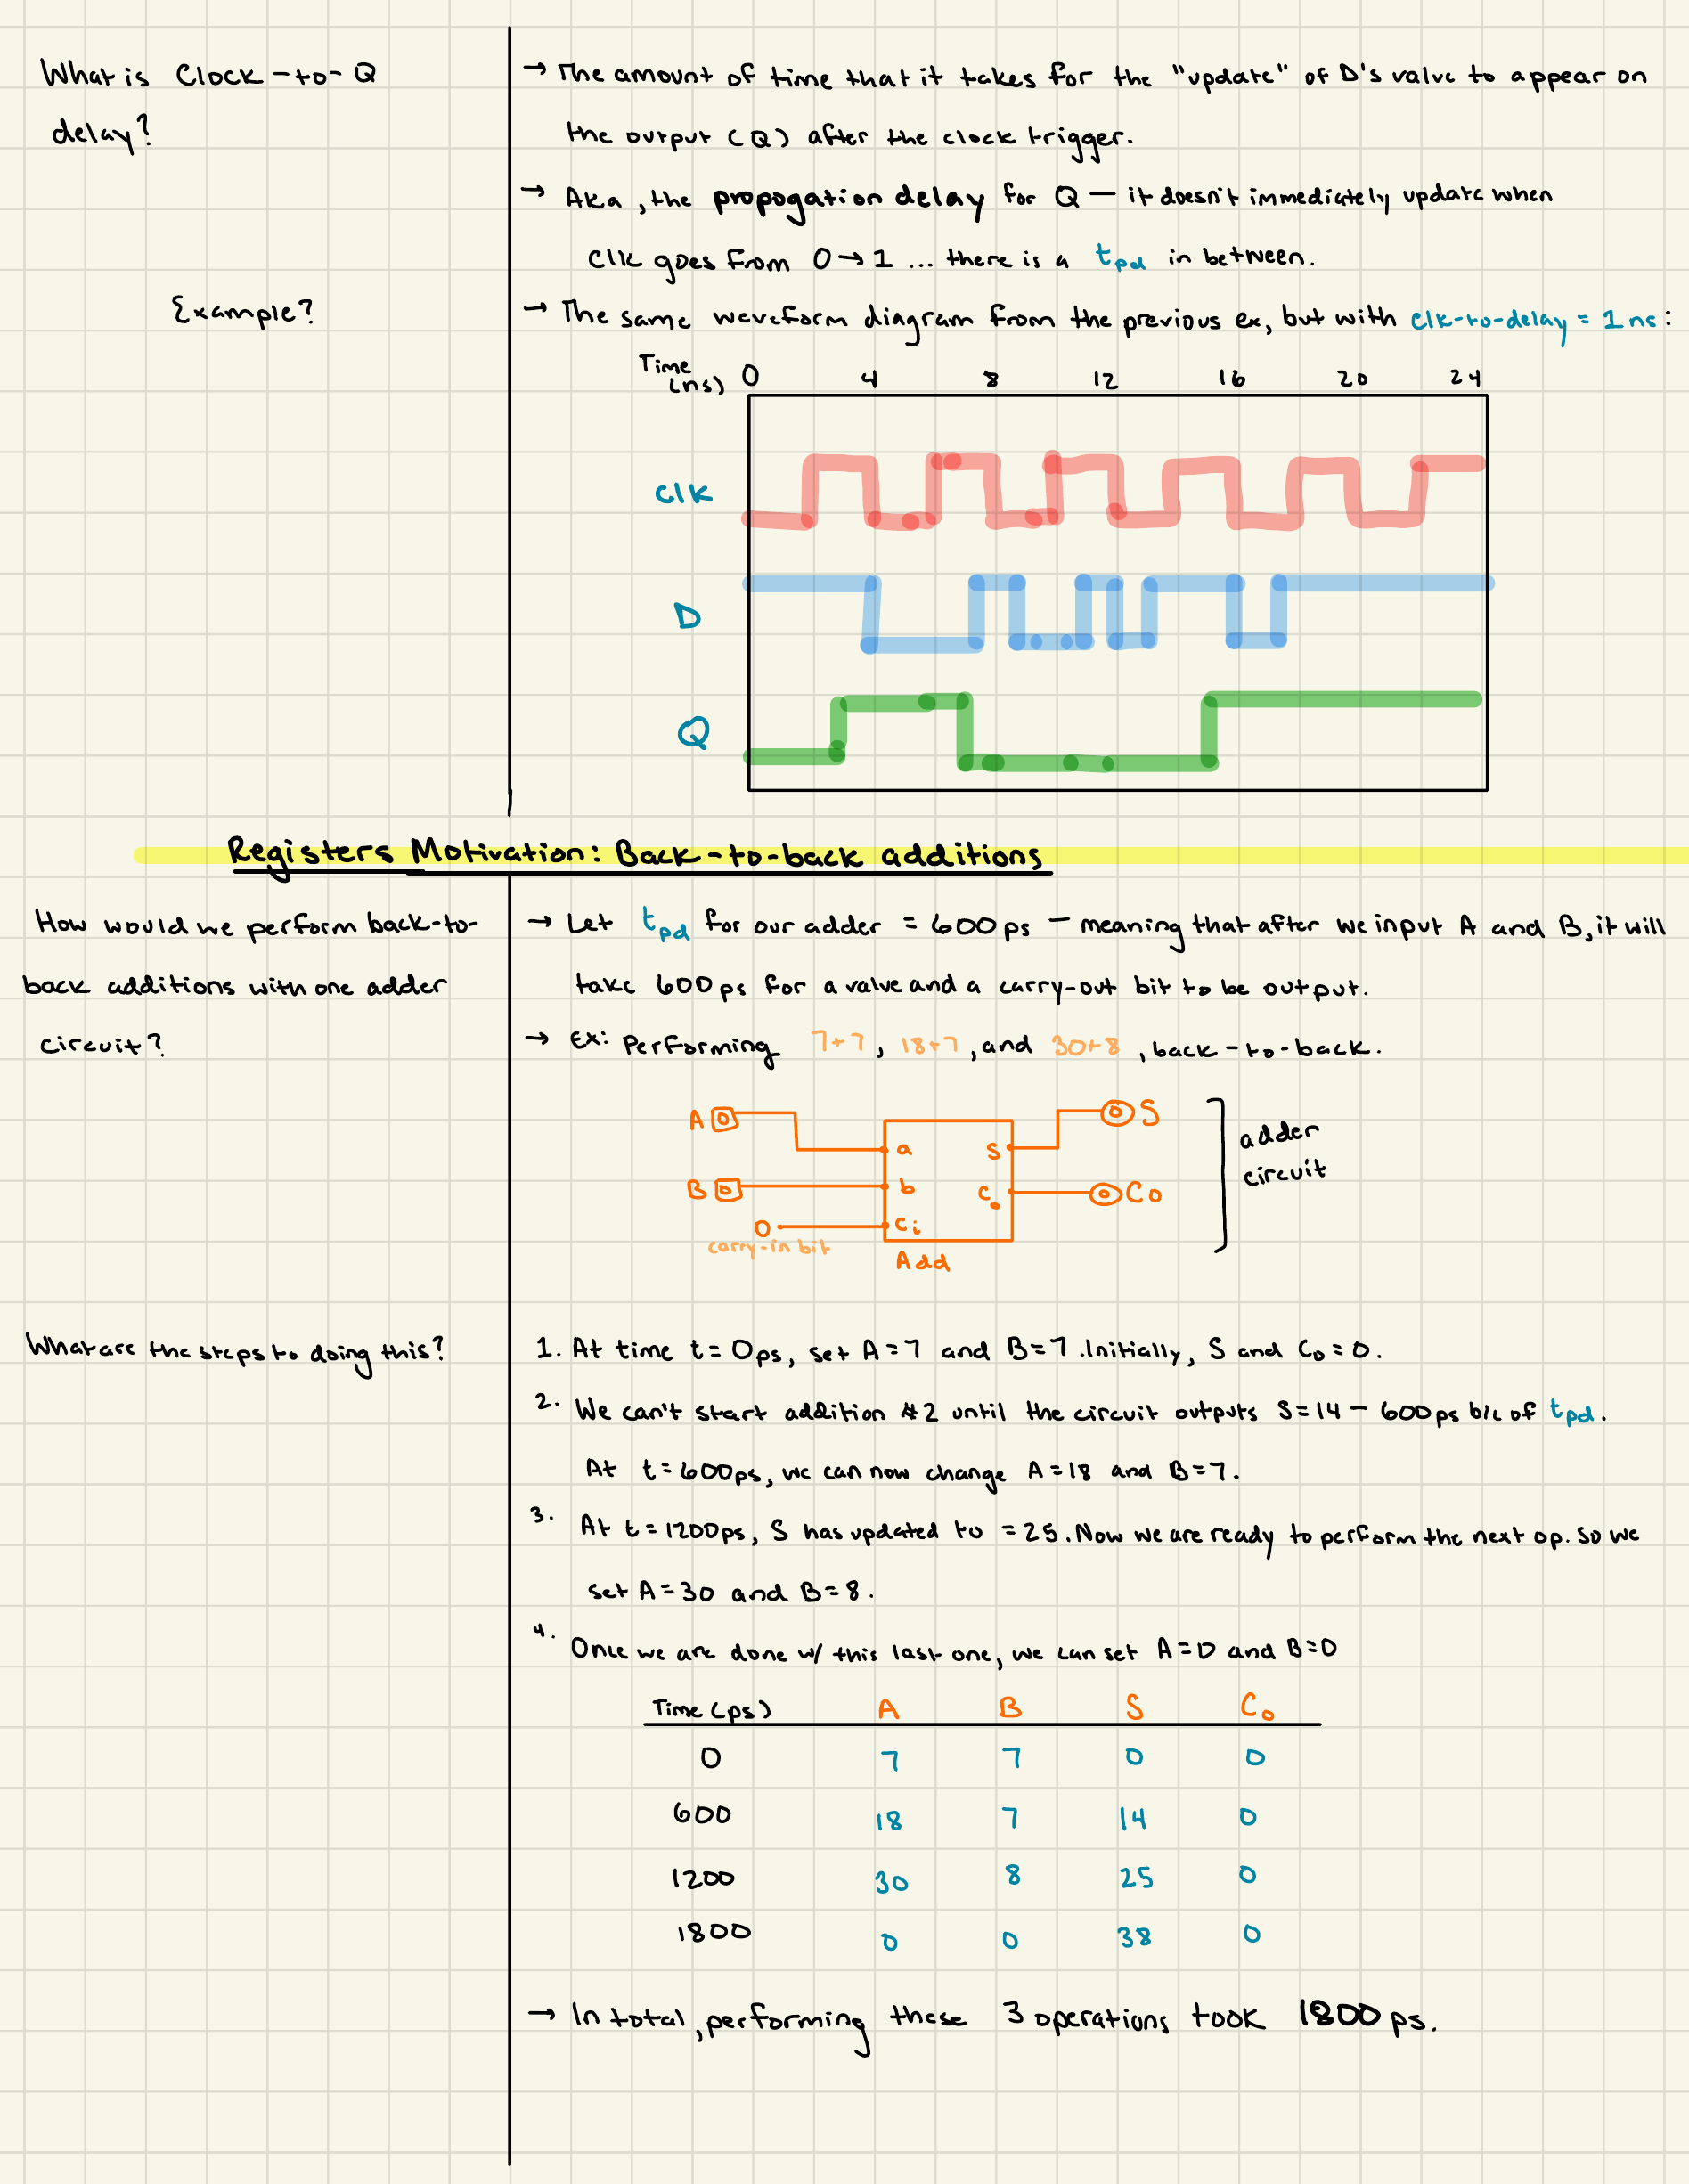 What is Clock-to-Q
delay?
→ The amount of time that it takes for the "update" of D's value to appear on
the output (Q) after the clock trigger.
→ Aka, the propogation delay for Q — it doesn't immediately update when
Clk goes from 0→1 ... there is a tpd in between.
Example?
→ The same waveform diagram from the previous ex, but with clk-to-delay = 1ns:
Time (ns) 0 4 8 12 16 20 24
Clk
D
Q
Registers Motivation: Back-to-back additions
How would we perform back-to-
back additions with one adder
circuit?
→ Let tpd for our adder = 600ps — meaning that after we input A and B, it will
take 600ps for a value and a carry-out bit to be output.
→ Ex: Performing 7+7, 18+7, and 30+8, back-to-back.
A
B
0
carry-in bit
a
b
Ci
s
Co
Add
S
Co
adder
circuit
What are the steps to doing this?
1. At time t=0ps, set A=7 and B=7. Initially, S and Co=0.
2. We can't start addition #2 until the circuit outputs S=14 — 600ps b/c of tpd.
At t=600ps, we can now change A=18 and B=7.
3. At t=1200ps, S has updated to =25. Now we are ready to perform the next op. So we
set A=30 and B=8.
4. Once we are done w/ this last one, we can set A=0 and B=0
Time (ps) A B S Co
0 7 7 0 0
600 18 7 14 0
1200 30 8 25 0
1800 0 0 38 0
→ In total, performing these 3 operations took 1800ps.